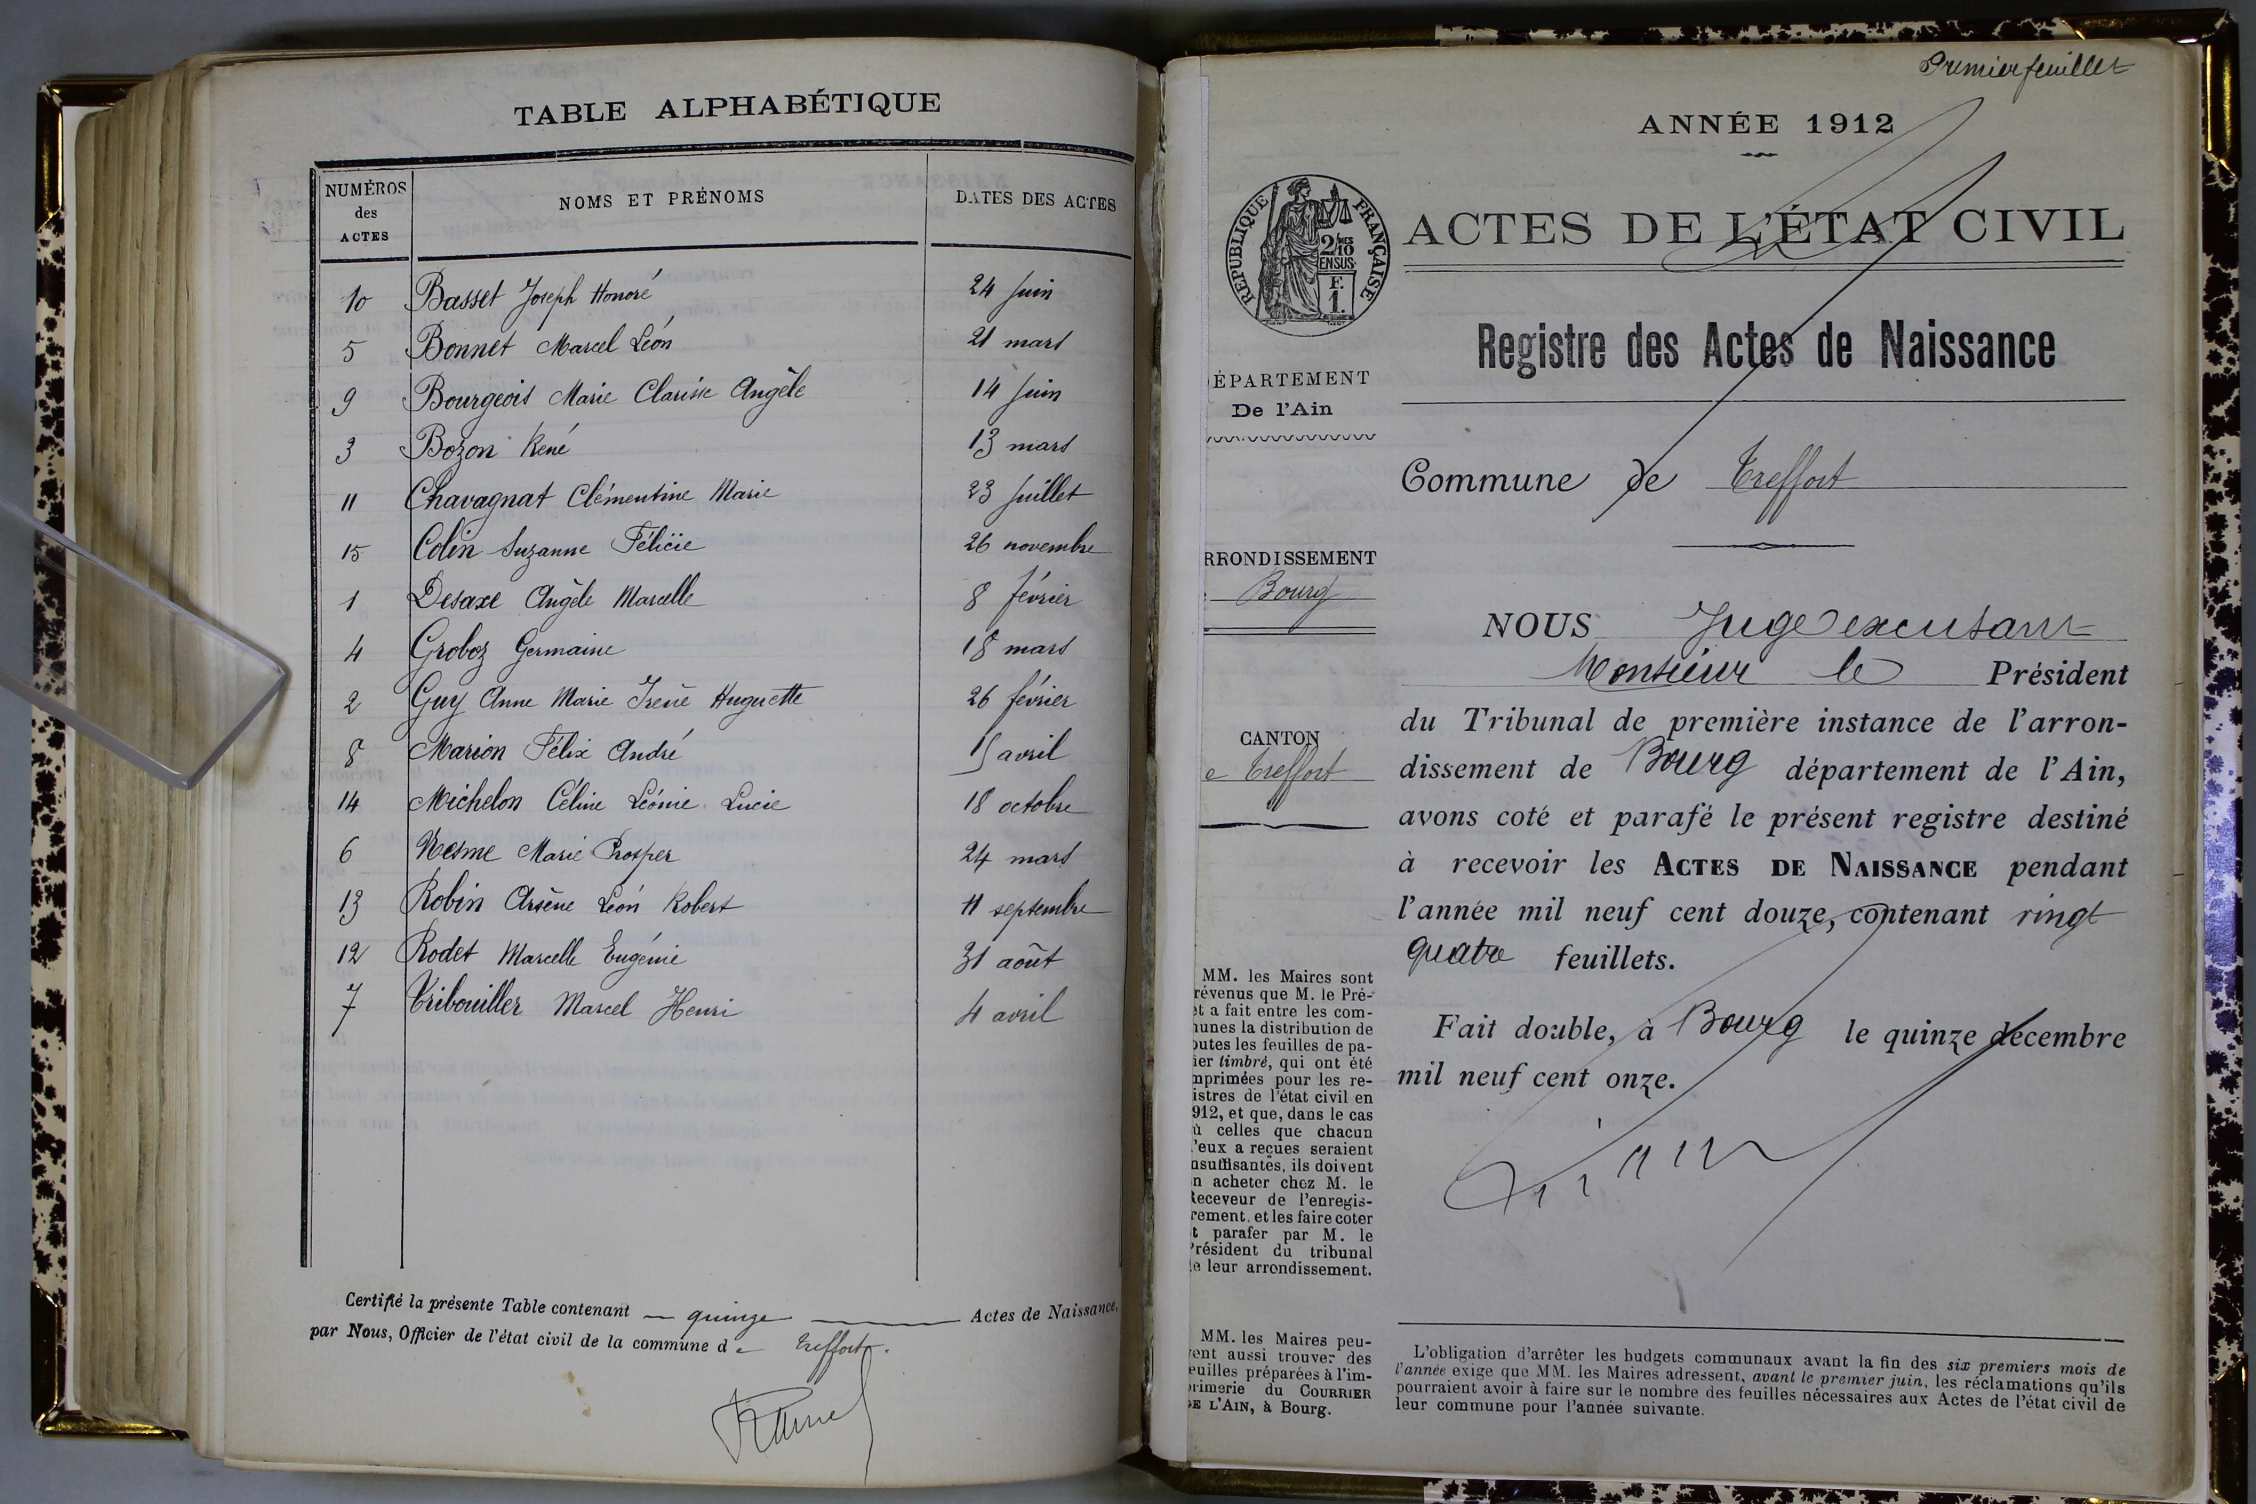 TABLE ALPHABÉTIQUE
NUMÉROS
des
ACTES
NOMS ET PRÉNOMS
DATES DES ACTES
10 Basset Joseph Honoré 24 Juin
5 Bonnet Marcel Léon 21 mars
9 Bourgeois Marie Clarisse Angèle 14 Juin
3 Bozon René 13 mars
11 Chavagnat Clémentine Marie 23 Juillet
15 Colin Suzanne Félicie 26 novembre
1 Desaxe Angèle Marcelle 8 février
4 Groboz Germaine 18 mars
2 Guy Anne Marie Irène Huguette 26 février
8 Marion Félix André 15 avril
14 Michelon Céline Léonie Lucie 18 octobre
6 Nesme Marie Prosper 24 mars
13 Robin Arsène Léon Robert 11 septembre
12 Rodet Marcelle Eugénie 31 août
7 Tribouiller Marcel Henri 4 avril
Certifié la présente Table contenant — quinze — Actes de Naissance,
par Nous, Officier de l'état civil de la commune de Treffort.
Premier feuillet
ANNÉE 1912
RÉPUBLIQUE FRANÇAISE
2/10
EN SUS
F.
1.
ACTES DE L'ÉTAT CIVIL
Registre des Actes de Naissance
ÉPARTEMENT
De l'Ain
Commune de Treffort
RRONDISSEMENT
Bourg
CANTON
e Treffort
NOUS Juge
Monsieur le Président
du Tribunal de première instance de l'arron-
dissement de Bourg département de l'Ain,
avons coté et parafé le présent registre destiné
à recevoir les ACTES DE NAISSANCE pendant
l'année mil neuf cent douze, contenant vingt
quatre feuillets.
Fait double, à Bourg le quinze décembre
mil neuf cent onze.
MM. les Maires sont
révenus que M. le Pré-
et a fait entre les com-
munes la distribution de
outes les feuilles de pa-
ier timbré, qui ont été
mprimées pour les re-
istres de l'état civil en
912, et que, dans le cas
ù celles que chacun
'eux a reçues seraient
nsuffisantes, ils doivent
n acheter chez M. le
Receveur de l'enregis-
rement, et les faire coter
t parafer par M. le
Président du tribunal
e leur arrondissement.
MM. les Maires peu-
vent aussi trouver des
euilles préparées à l'im-
primerie du COURRIER
DE L'AIN, à Bourg.
L'obligation d'arrêter les budgets communaux avant la fin des six premiers mois de
l'année exige que MM. les Maires adressent, avant le premier juin, les réclamations qu'ils
pourraient avoir à faire sur le nombre des feuilles nécessaires aux Actes de l'état civil de
leur commune pour l'année suivante.